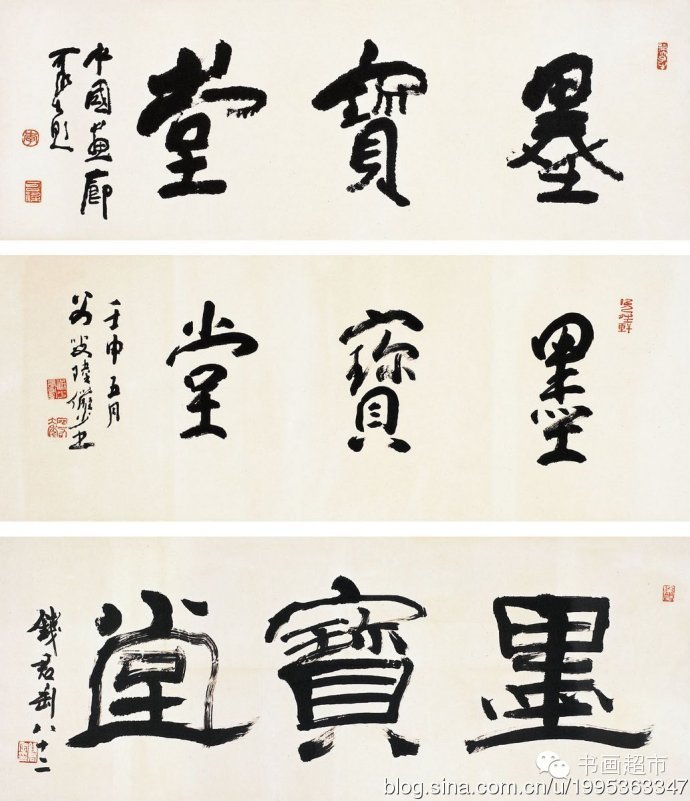 墨寶堂
中國畫廊
可染題
墨寶堂
壬申五月
陸儼少書
墨寶堂
錢君匋八十二
书画超市
blog.sina.com.cn/u/1995363347